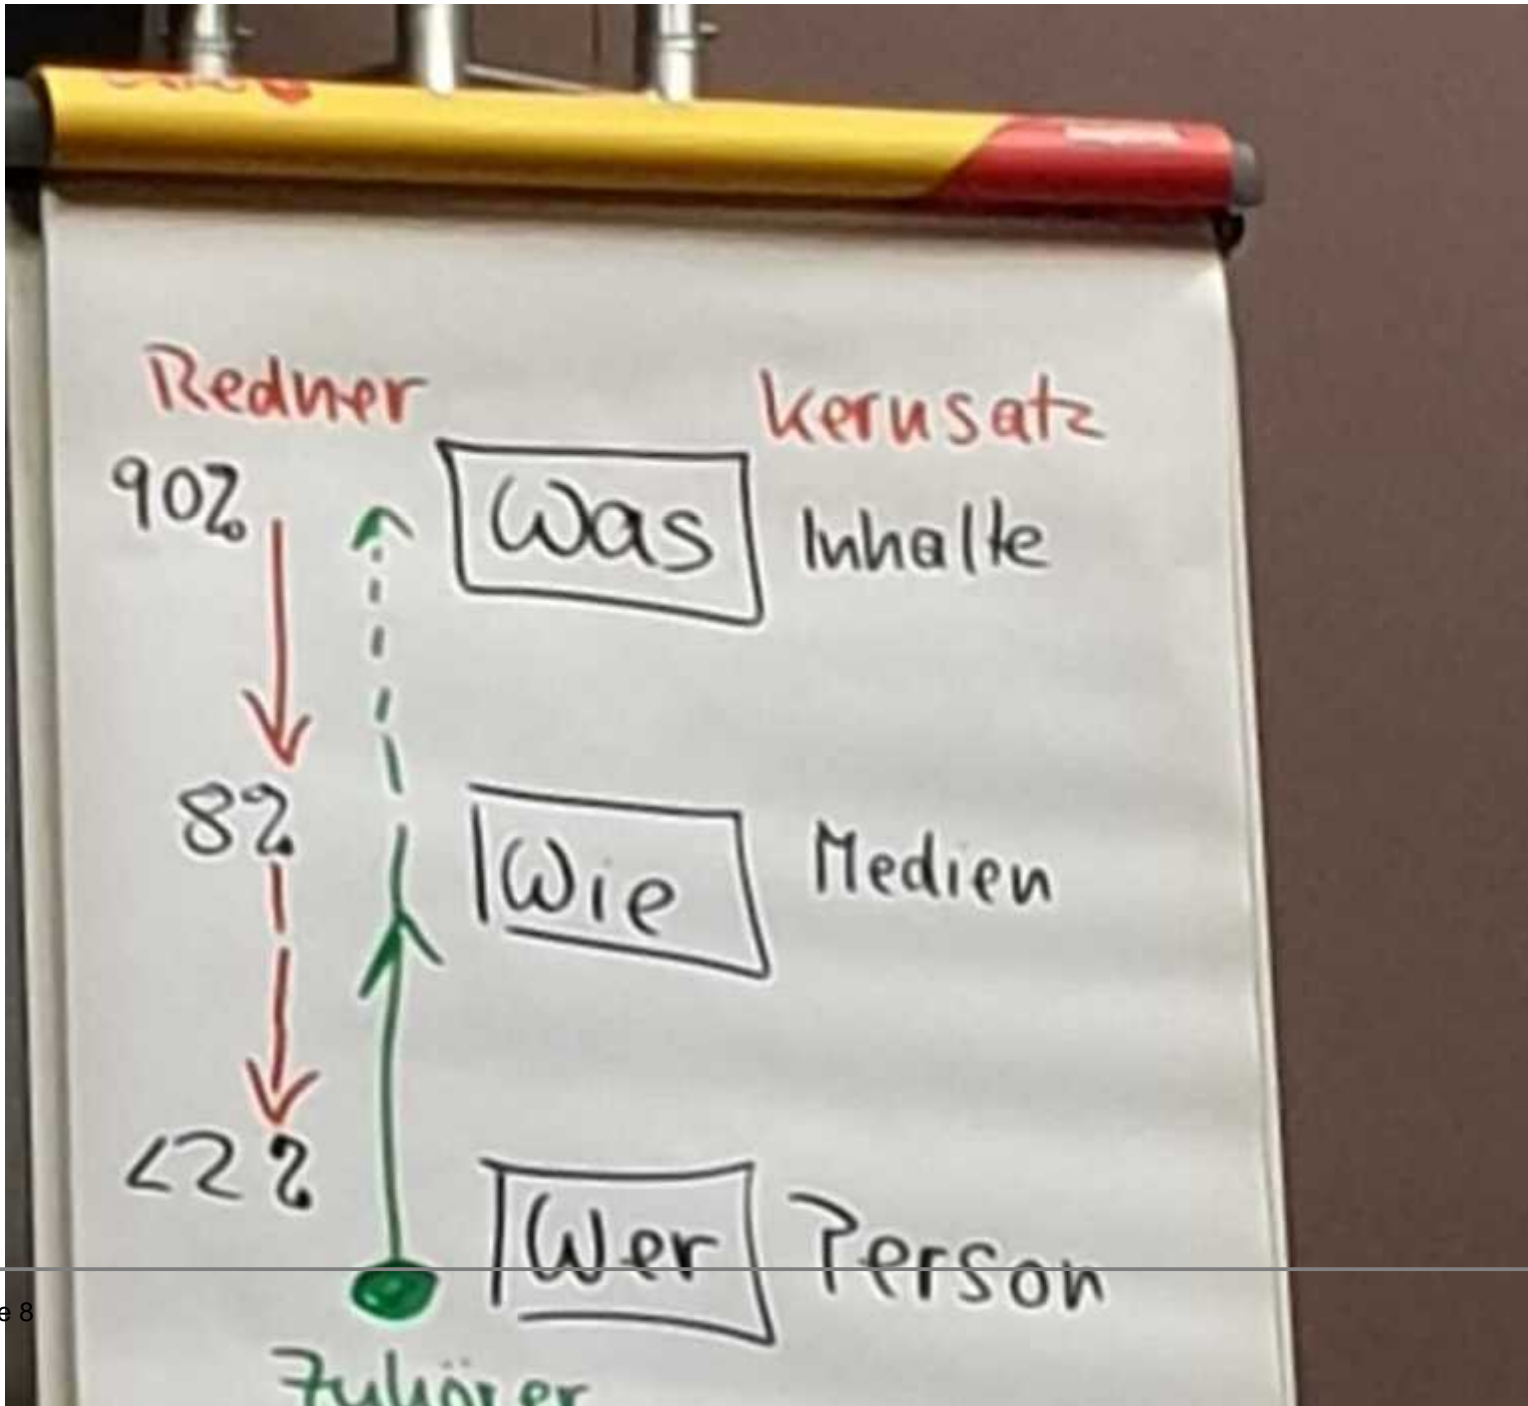 Redner Kernsatz
90% Was Inhalte
8% Wie Medien
<2% Wer Person
e 8
Zuhörer